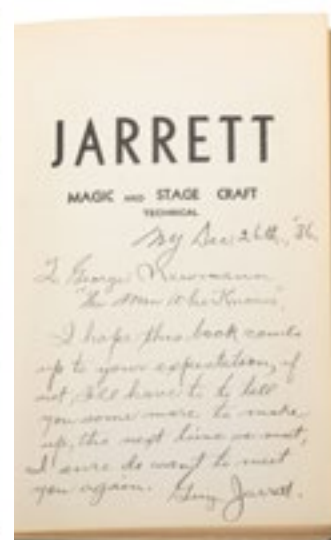 JARRETT
MAGIC AND STAGE CRAFT
TECHNICAL
NY Dec 26th, '36.
To George Newmann
"the Man Who Knows",
I hope this book comes
up to your expectation, if
not I'll have to tell
you some more to make
up, the next time we meet,
I sure do want to meet
you again. Guy Jarrett.